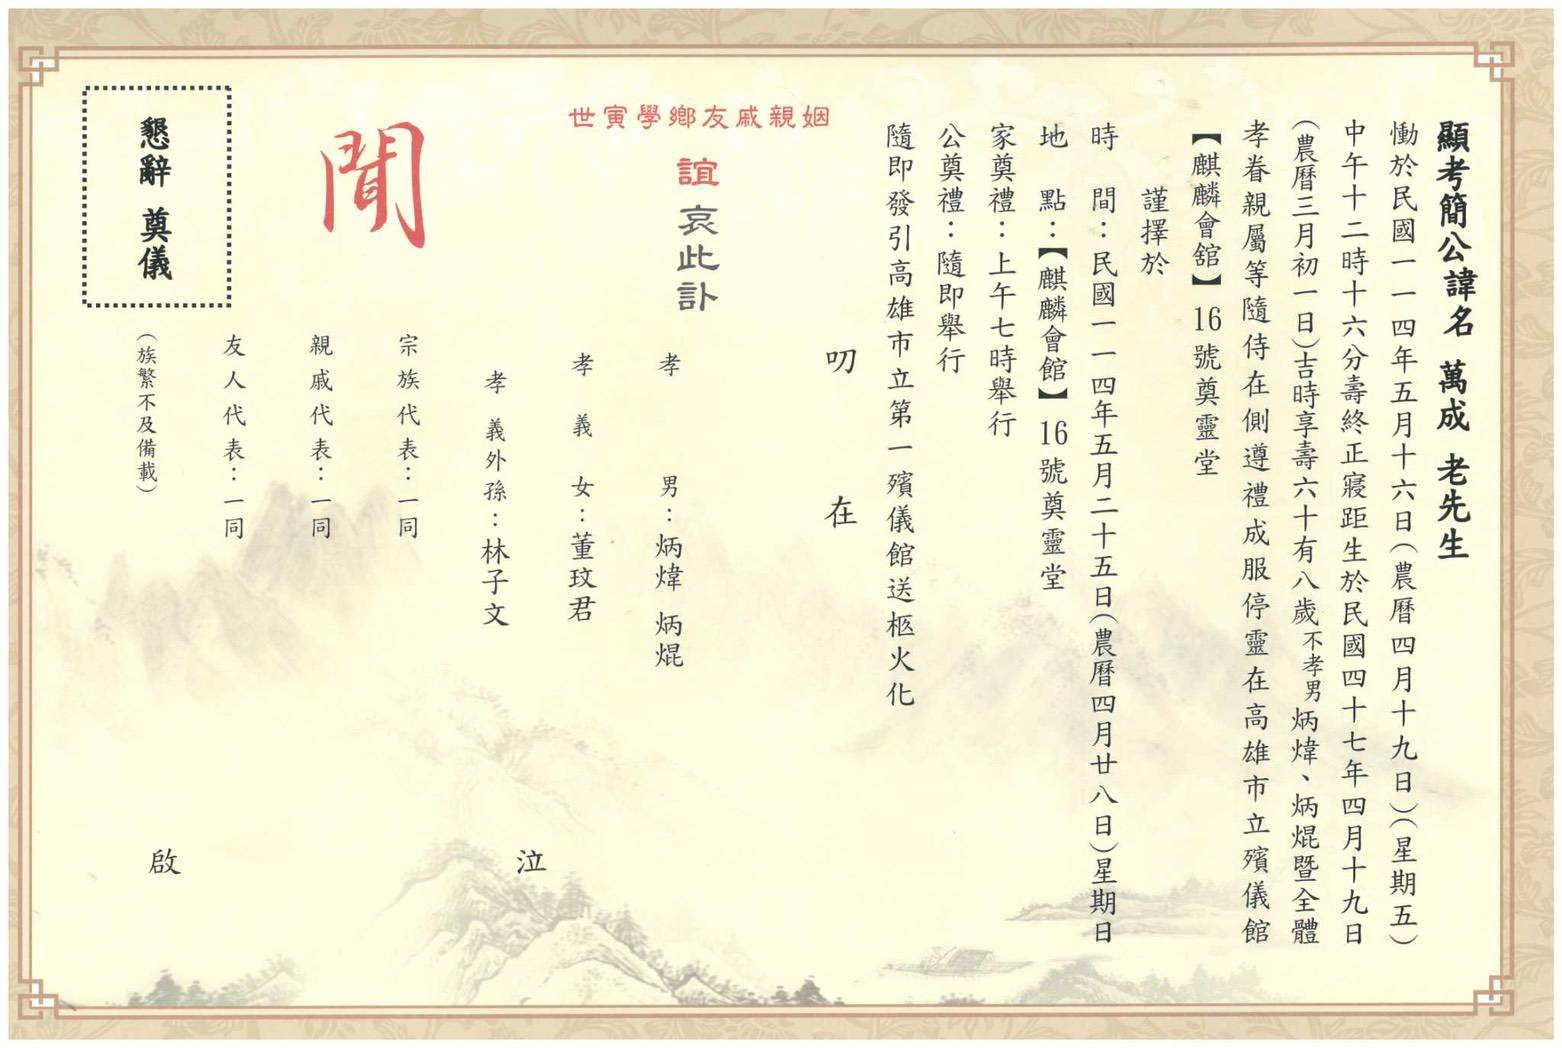 顯考簡公諱名 萬成 老先生
慟於民國一一四年五月十六日(農曆四月十九日)(星期五)
中午十二時十六分壽終正寢距生於民國四十七年四月十九日
(農曆三月初一日)吉時享壽六十有八歲不孝男炳煒、炳焜暨全體
孝眷親屬等隨侍在側遵禮成服停靈在高雄市立殯儀館
【麒麟會舘】16號奠靈堂
謹擇於
時 間：民國一一四年五月二十五日(農曆四月廿八日)星期日
地 點：【麒麟會館】16號奠靈堂
家奠禮：上午七時舉行
公奠禮：隨即舉行
隨即發引高雄市立第一殯儀館送柩火化
叨 在
世寅學鄉友戚親姻
誼 哀此訃
孝 男：炳煒 炳焜
孝 義 女：董玟君
孝 義外孫：林子文
泣
聞
宗族代表：一同
親戚代表：一同
友人代表：一同
(族繁不及備載)
啟
懇辭 奠儀